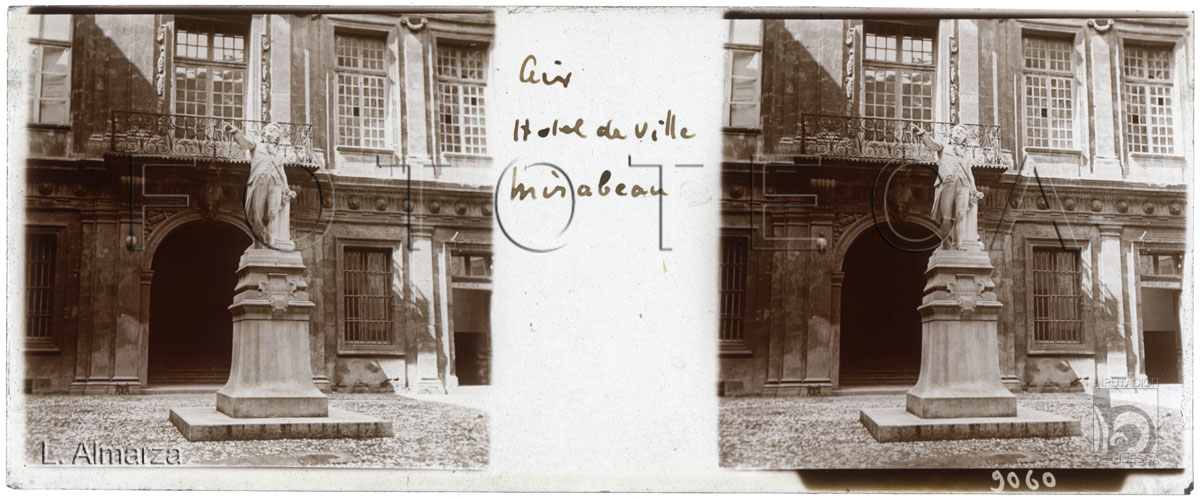 Aix
Hotel de Ville
Mirabeau
FOTOTECA
POLICE
L. Almarza
DIPUTACIÓN
DE HUESCA
9060